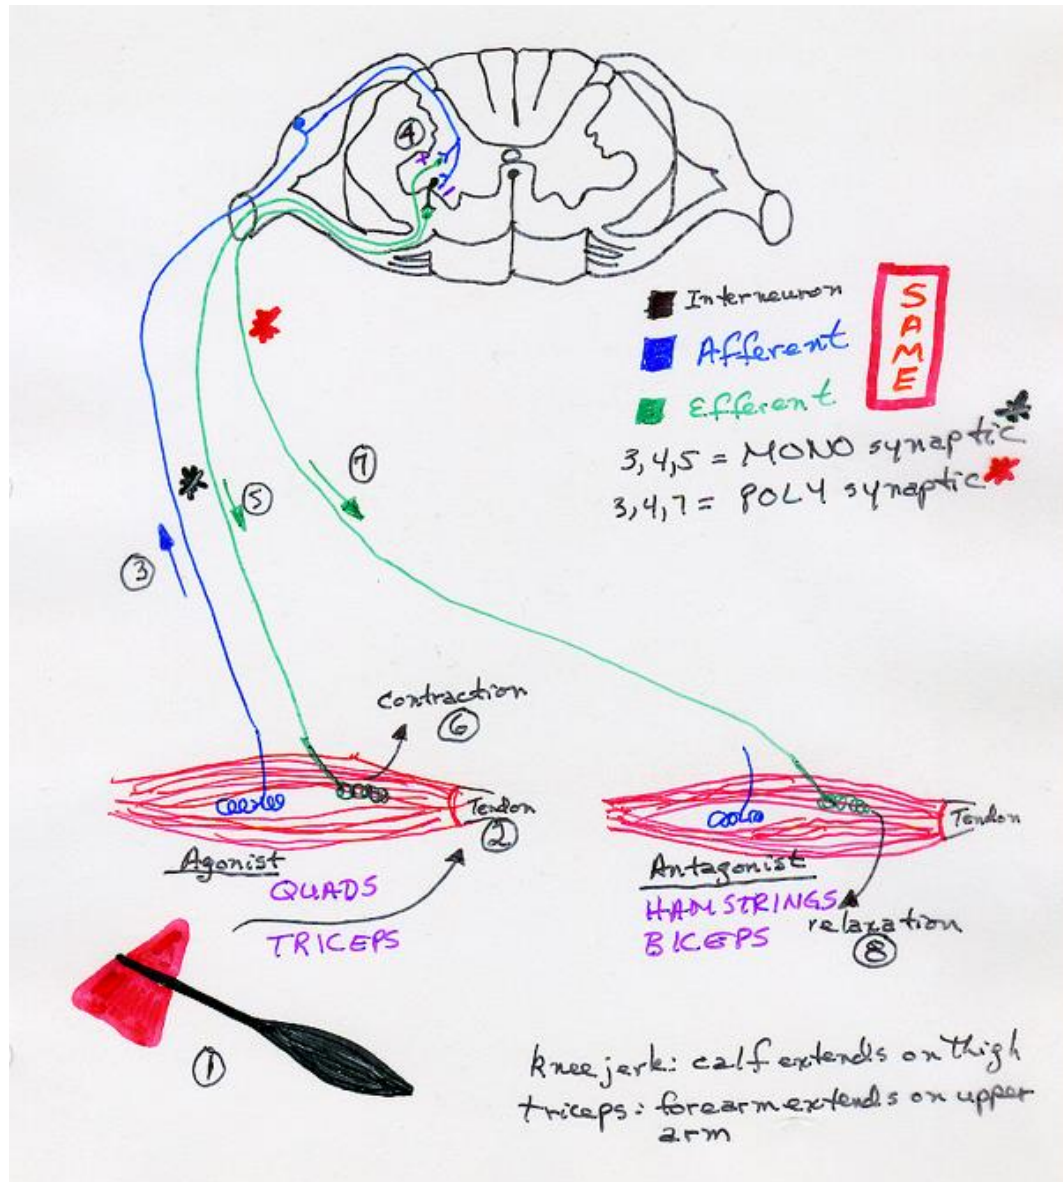 4
+
-
Interneuron
Afferent
Efferent
SAME
3,4,5 = MONO synaptic
3,4,7 = POLY synaptic
7
5
3
contraction
6
Tendon
2
Tendon
Agonist
QUADS
TRICEPS
Antagonist
HAMSTRINGS
BICEPS
relaxation
8
1
knee jerk: calf extends on thigh
triceps: forearm extends on upper
arm